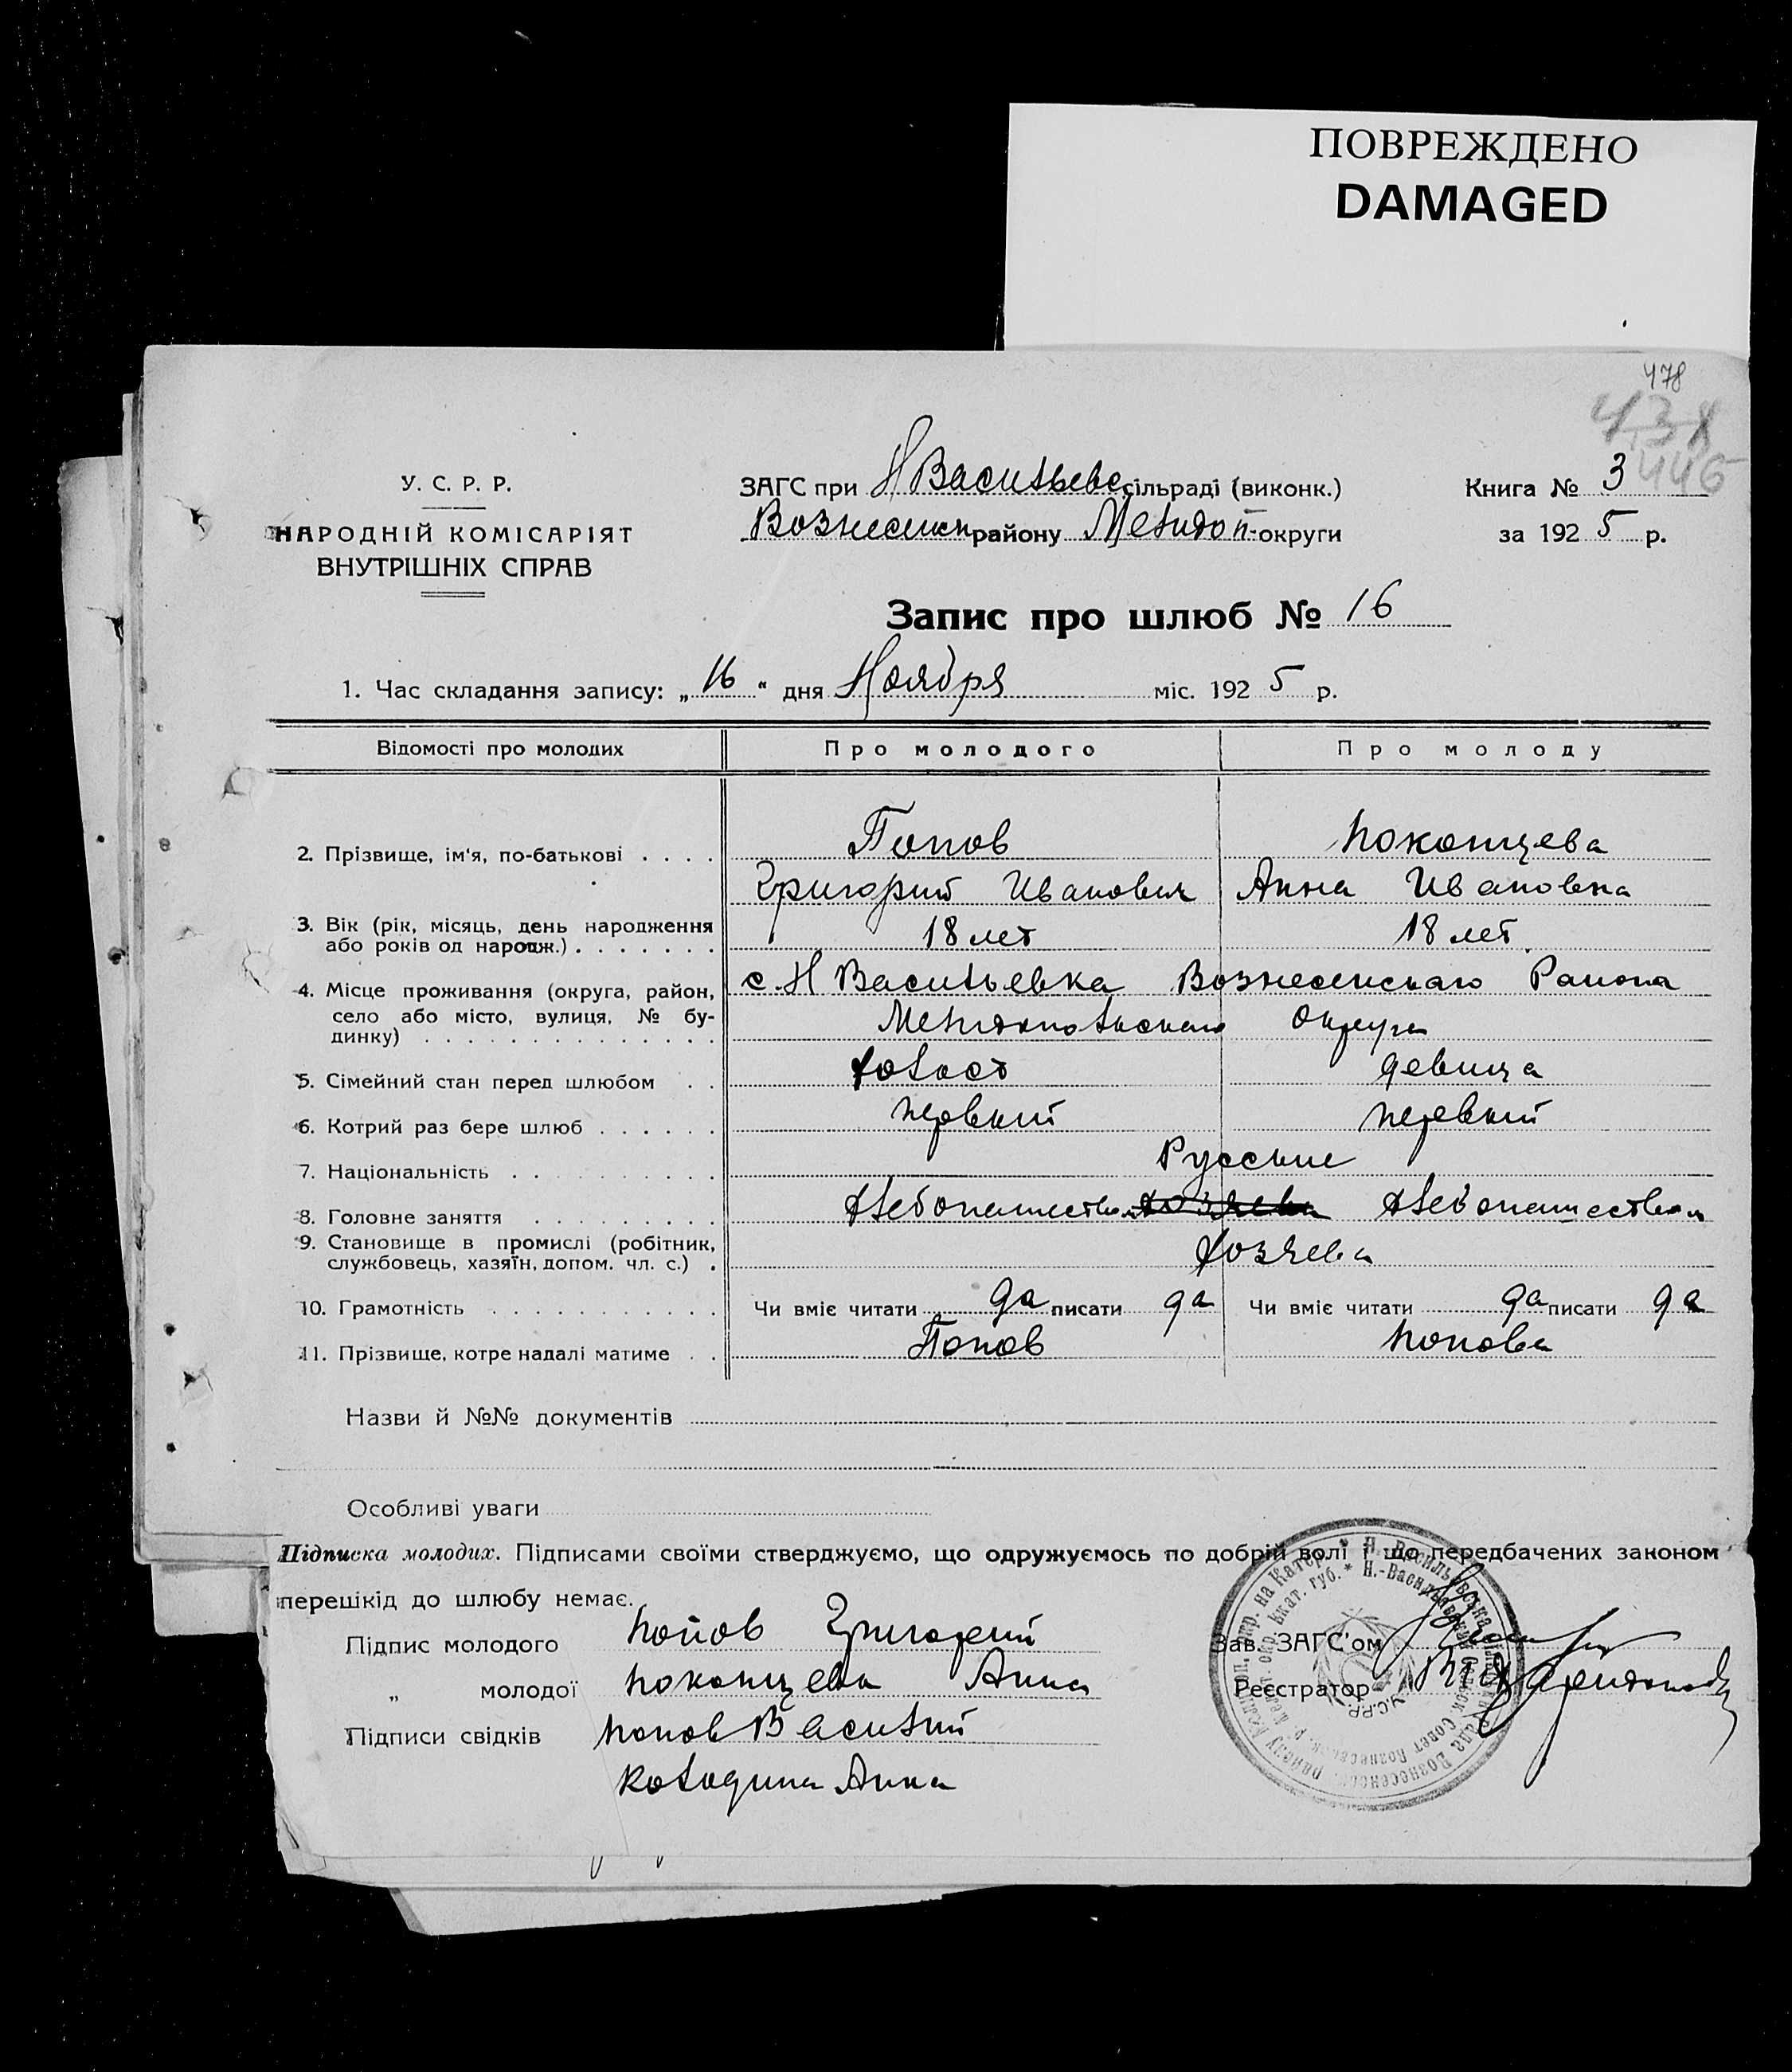 ПОВРЕЖДЕНО
DAMAGED
478
438
446
У. С. Р. Р.
НАРОДНІЙ КОМІСАРІЯТ
ВНУТРІШНІХ СПРАВ
ЗАГС при Н Васильевс сільраді (виконк.)
Вознесенск району Мелитоп. округи
Книга № 3
за 1925 р.
Запис про шлюб № 16
1. Час складання запису: „16“ дня Ноября міс. 1925 р.
Відомості про молодих Про молодого Про молоду
2. Прізвище, ім'я, по-батькові . . . . Попов Покопцева
Григорий Иванович Анна Ивановна
3. Вік (рік, місяць, день народження
або років од народж.) . . . . . . . 18 лет 18 лет.
4. Місце проживання (округа, район, с. Н Васильевка Вознесенскаго Района
село або місто, вулиця, № бу-
динку) . . . . . . . . . . . . . . Мелитопольскаго Округа
5. Сімейний стан перед шлюбом . . Холост девица
6. Котрий раз бере шлюб . . . . . . первый первый
7. Національність . . . . . . . . . . Русские
8. Головне заняття . . . . . . . . . Хлебопашество Хозяева Хлебопашество
9. Становище в промислі (робітник,
службовець, хазяїн, допом. чл. с.) . Хозяева
10. Грамотність . . . . . . . . . . . Чи вміє читати да писати да Чи вміє читати да писати да
11. Прізвище, котре надалі матиме . . Попов Попова
Назви й №№ документів
Особливі уваги
Підписка молодих. Підписами своїми стверджуємо, що одружуємось по добрій волі і що передбачених законом
перешкід до шлюбу немає.
Підпис молодого Попов Григорий
„ молодої Покопцева Анна
Підписи свідків Попов Василий
Колодина Анна
Зав. ЗАГС'ом
Реєстратор
У.С.Р.Р.